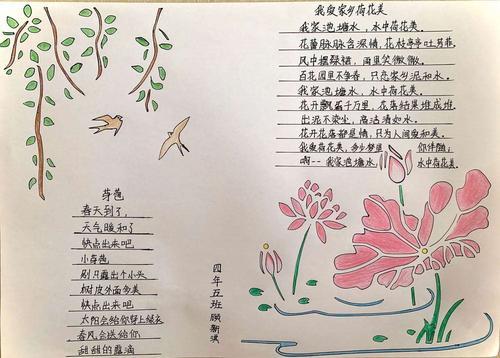 我爱家乡荷花美
我家池塘水，水中荷花美。
花蕾脉脉含深情，花枝亭亭吐芬菲。
风中摆绿裙，雨里笑微微。
百花园里不争春，只恋家乡泥和水。
我家池塘水，水中荷花美。
花开飘香千万里，花落结果堆成堆。
出泥不染尘，高洁清如水。
花开花落都是情，只为人间爱和美。
我爱荷花美，多少梦里 你伴随；
啊--我家池塘水， 水中荷花美。
芽苞
春天到了，
天气暖和了
快点出来吧
小芽苞
别只露出个小头
树皮外面多美
快点出来吧
太阳会给你穿上绿衣
春风会送给你
甜甜的露滴
四年五班 顾新淇